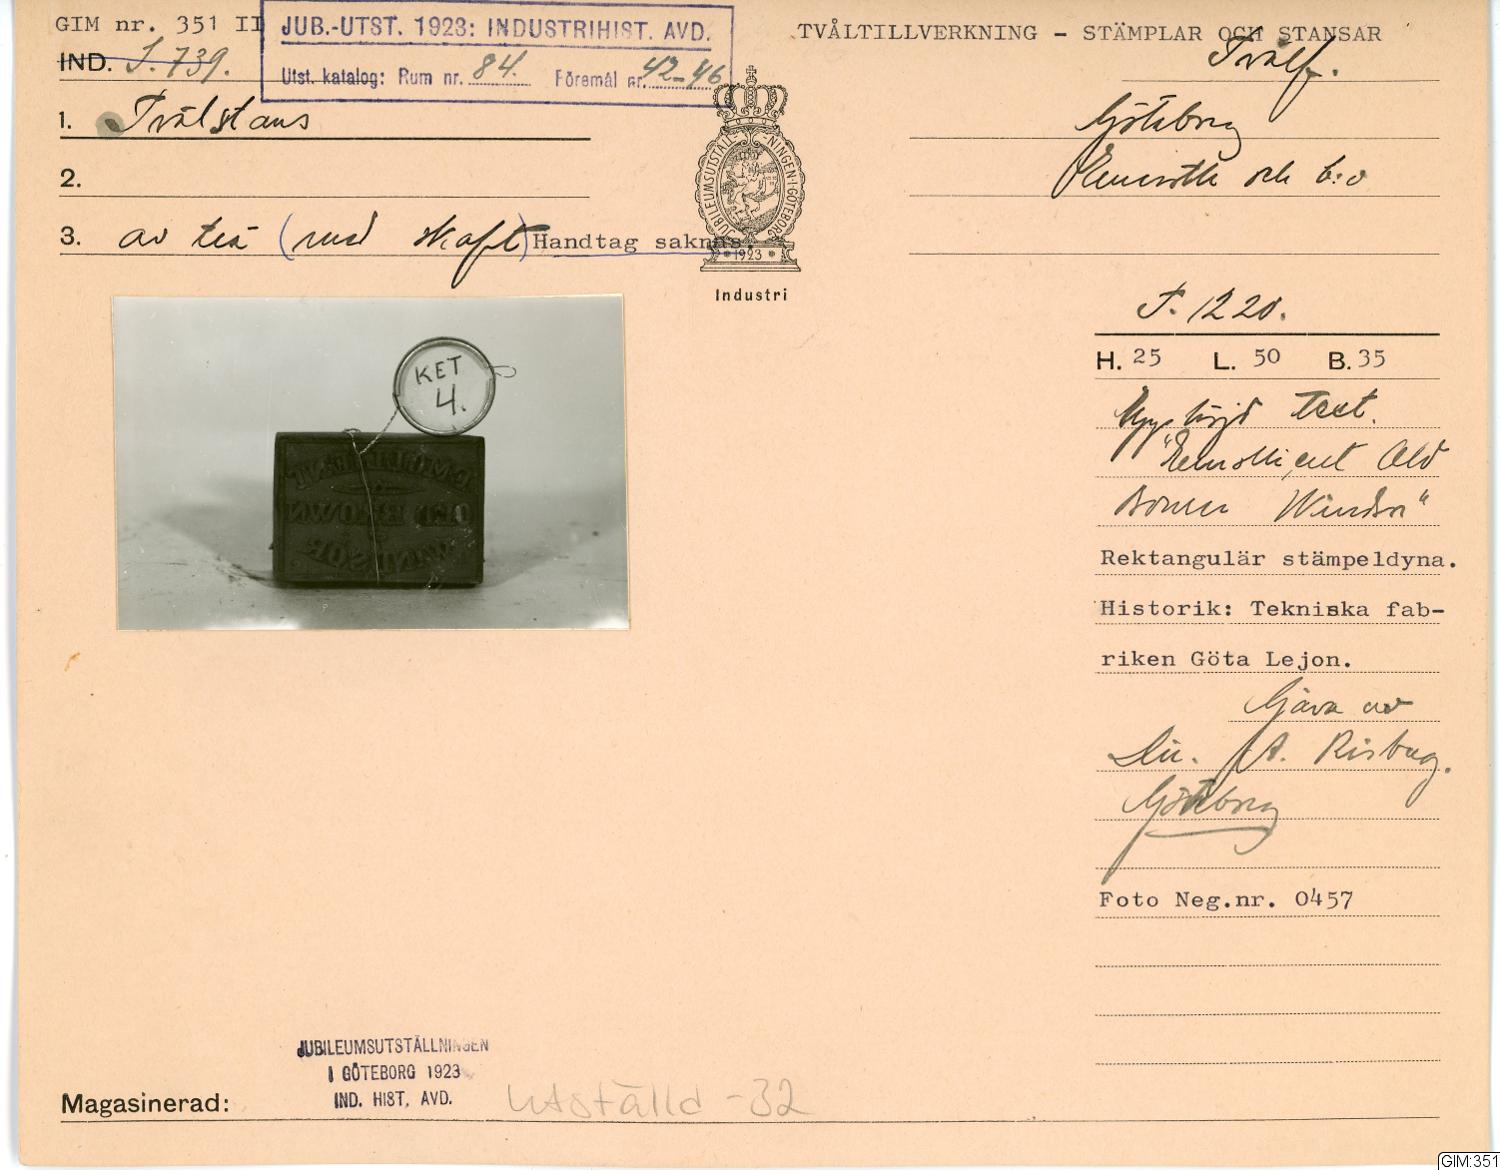 GIM nr. 351 II
JUB.-UTST. 1923: INDUSTRIHIST. AVD.
Utst. katalog: Rum nr. 84. Föremål nr. 42-46
TVÅLTILLVERKNING - STÄMPLAR OCH STANSAR
IND. J. 739.
Tvålf.
1. Tvålstans
Göteborg
2.
och
3. av trä (med skaft) Handtag saknas.
JUBILEUMSUTSTÄLLNINGEN I GÖTEBORG
1923
Industri
F. 1220.
H. 25 L. 50 B. 35
Upphöjd text.
"Emollient Old
Brown Windsor"
Rektangulär stämpeldyna.
Historik: Tekniska fab-
riken Göta Lejon.
Gåva av
A. Risberg.
Göteborg
Foto Neg.nr. 0457
KET
4.
EMOLLIENT
OLD BROWN
WINDSOR
JUBILEUMSUTSTÄLLNINGEN
I GÖTEBORG 1923
IND. HIST. AVD.
Magasinerad: Utställd -32
GIM:351